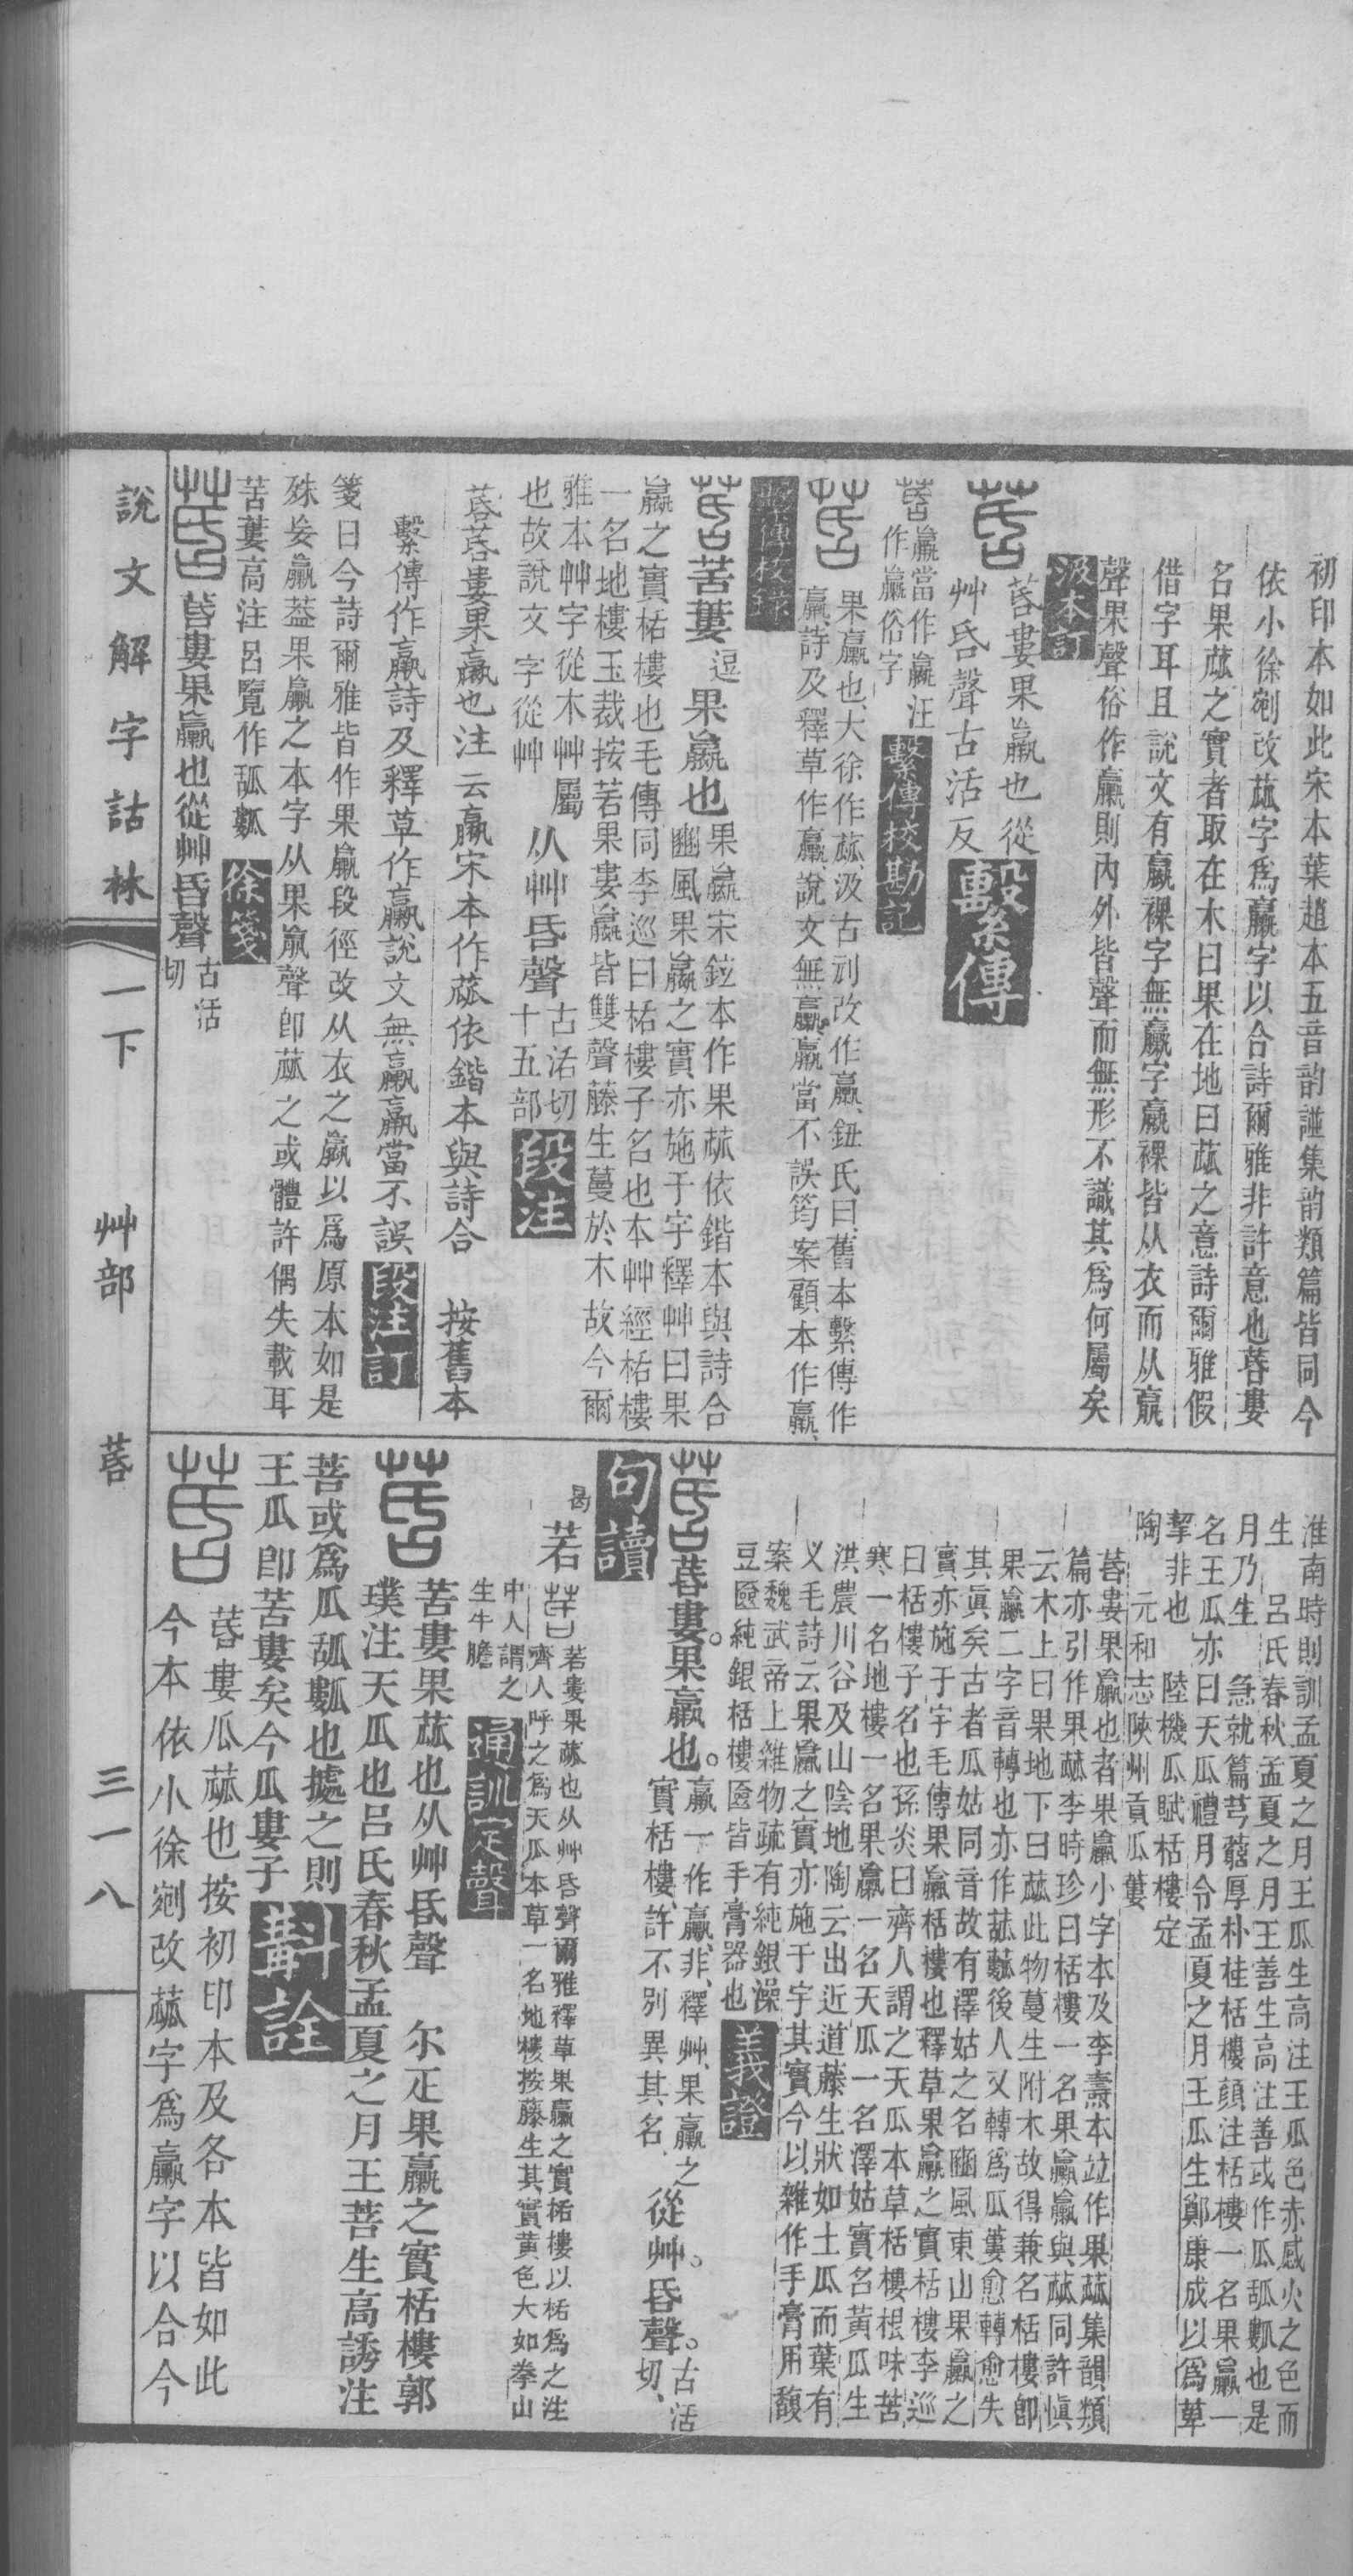 初印本如此宋本葉趙本五音韵譜集韵類篇皆同今
依小徐剜改蓏字爲蠃字以合詩爾雅非許意也䓇蔞
名果蓏之實者取在木曰果在地曰蓏之意詩爾雅假
借字耳且說文有臝裸字無蠃字臝裸皆从衣而从𣎆
聲果聲俗作蠃則內外皆聲而無形不識其爲何屬矣
汲本訂
䓇蔞果蠃也從
艸昏聲古活反
繫傳
䓇蠃當作蠃汪
作蠃俗字
繫傳校勘記
果蠃也大徐作蓏汲古刓改作蠃鈕氏曰舊本繫傳作
蠃詩及釋草作蠃說文無蠃蠃當不誤筠案顧本作蠃
繫傳校錄
苦蔞逗果蠃也果蠃宋鉉本作果蓏依鍇本與詩合
豳風果蠃之實亦施于宇釋艸曰果
蠃之實栝樓也毛傳同李巡曰栝樓子名也本艸經栝樓
一名地樓玉裁按苦果婁蠃皆雙聲藤生蔓於木故今爾
雅本艸字從木艸屬
也故說文字從艸
从艸昏聲古活切
十五部
段注
䓇䓇婁果蠃也注云蠃宋本作蓏依鍇本與詩合 按舊本
繫傳作蠃詩及釋草作蠃說文無蠃蠃當不誤
段注訂
箋曰今詩爾雅皆作果蠃段徑改从衣之蠃以爲原本如是
殊妄蠃葢果蠃之本字从果𣎆聲卽蓏之或體許偶失載耳
苦蔞高注呂覽作㼋瓤
徐箋
䓇婁果蠃也從艸昏聲古活
切
淮南時則訓孟夏之月王瓜生高注王瓜色赤感火之色而
生 呂氏春秋孟夏之月王善生高注善或作瓜㼋瓤也是
月乃生 急就篇芎藭厚朴桂栝樓顔注栝樓一名果蠃一
名王瓜亦曰天瓜禮月令孟夏之月王瓜生鄭康成以爲萆
挈非也 陸機瓜賦栝樓定
陶 元和志陝州貢瓜蔞
䓇婁果蠃也者果蠃小字本及李燾本竝作果蓏集韻類
篇亦引作果蓏李時珍曰栝樓一名果蠃蠃與蓏同許愼
云木上曰果地下曰蓏此物蔓生附木故得兼名栝樓卽
果蠃二字音轉也亦作菰䕡後人又轉爲瓜蔞愈轉愈失
其眞矣古者瓜姑同音故有澤姑之名豳風東山果蠃之
實亦施于宇毛傳果蠃栝樓也釋草果蠃之實栝樓李巡
曰栝樓子名也孫炎曰齊人謂之天瓜本草栝樓根味苦
寒一名地樓一名果蠃一名天瓜一名澤姑實名黃瓜生
洪農川谷及山陰地陶云出近道藤生狀如土瓜而葉有
义毛詩云果蠃之實亦施于宇其實今以雜作手膏用馥
案魏武帝上雜物疏有純銀澡
豆匳純銀栝樓匳皆手膏器也
義證
䓇婁果蠃也蠃一作蠃非釋艸果蠃之
實栝樓許不別異其名
從艸昏聲古活
切
句讀
曷苦
䓇苦婁果蓏也从艸昏聲爾雅釋草果蠃之實栝樓以栝爲之注
齊人呼之爲天瓜本草一名地樓按藤生其實黄色大如拳山
中人謂之
生牛膽
通訓定聲
苦婁果蓏也从艸昏聲 尔疋果蠃之實栝樓郭
璞注天瓜也呂氏春秋孟夏之月王菩生高誘注
菩或爲瓜㼋瓤也據之則
王瓜卽苦婁矣今瓜婁子
斠詮
䓇婁瓜蓏也按初印本及各本皆如此
今本依小徐剜改蓏字爲蠃字以合今
說文解字詁林 一下 艸部 䓇 三一八